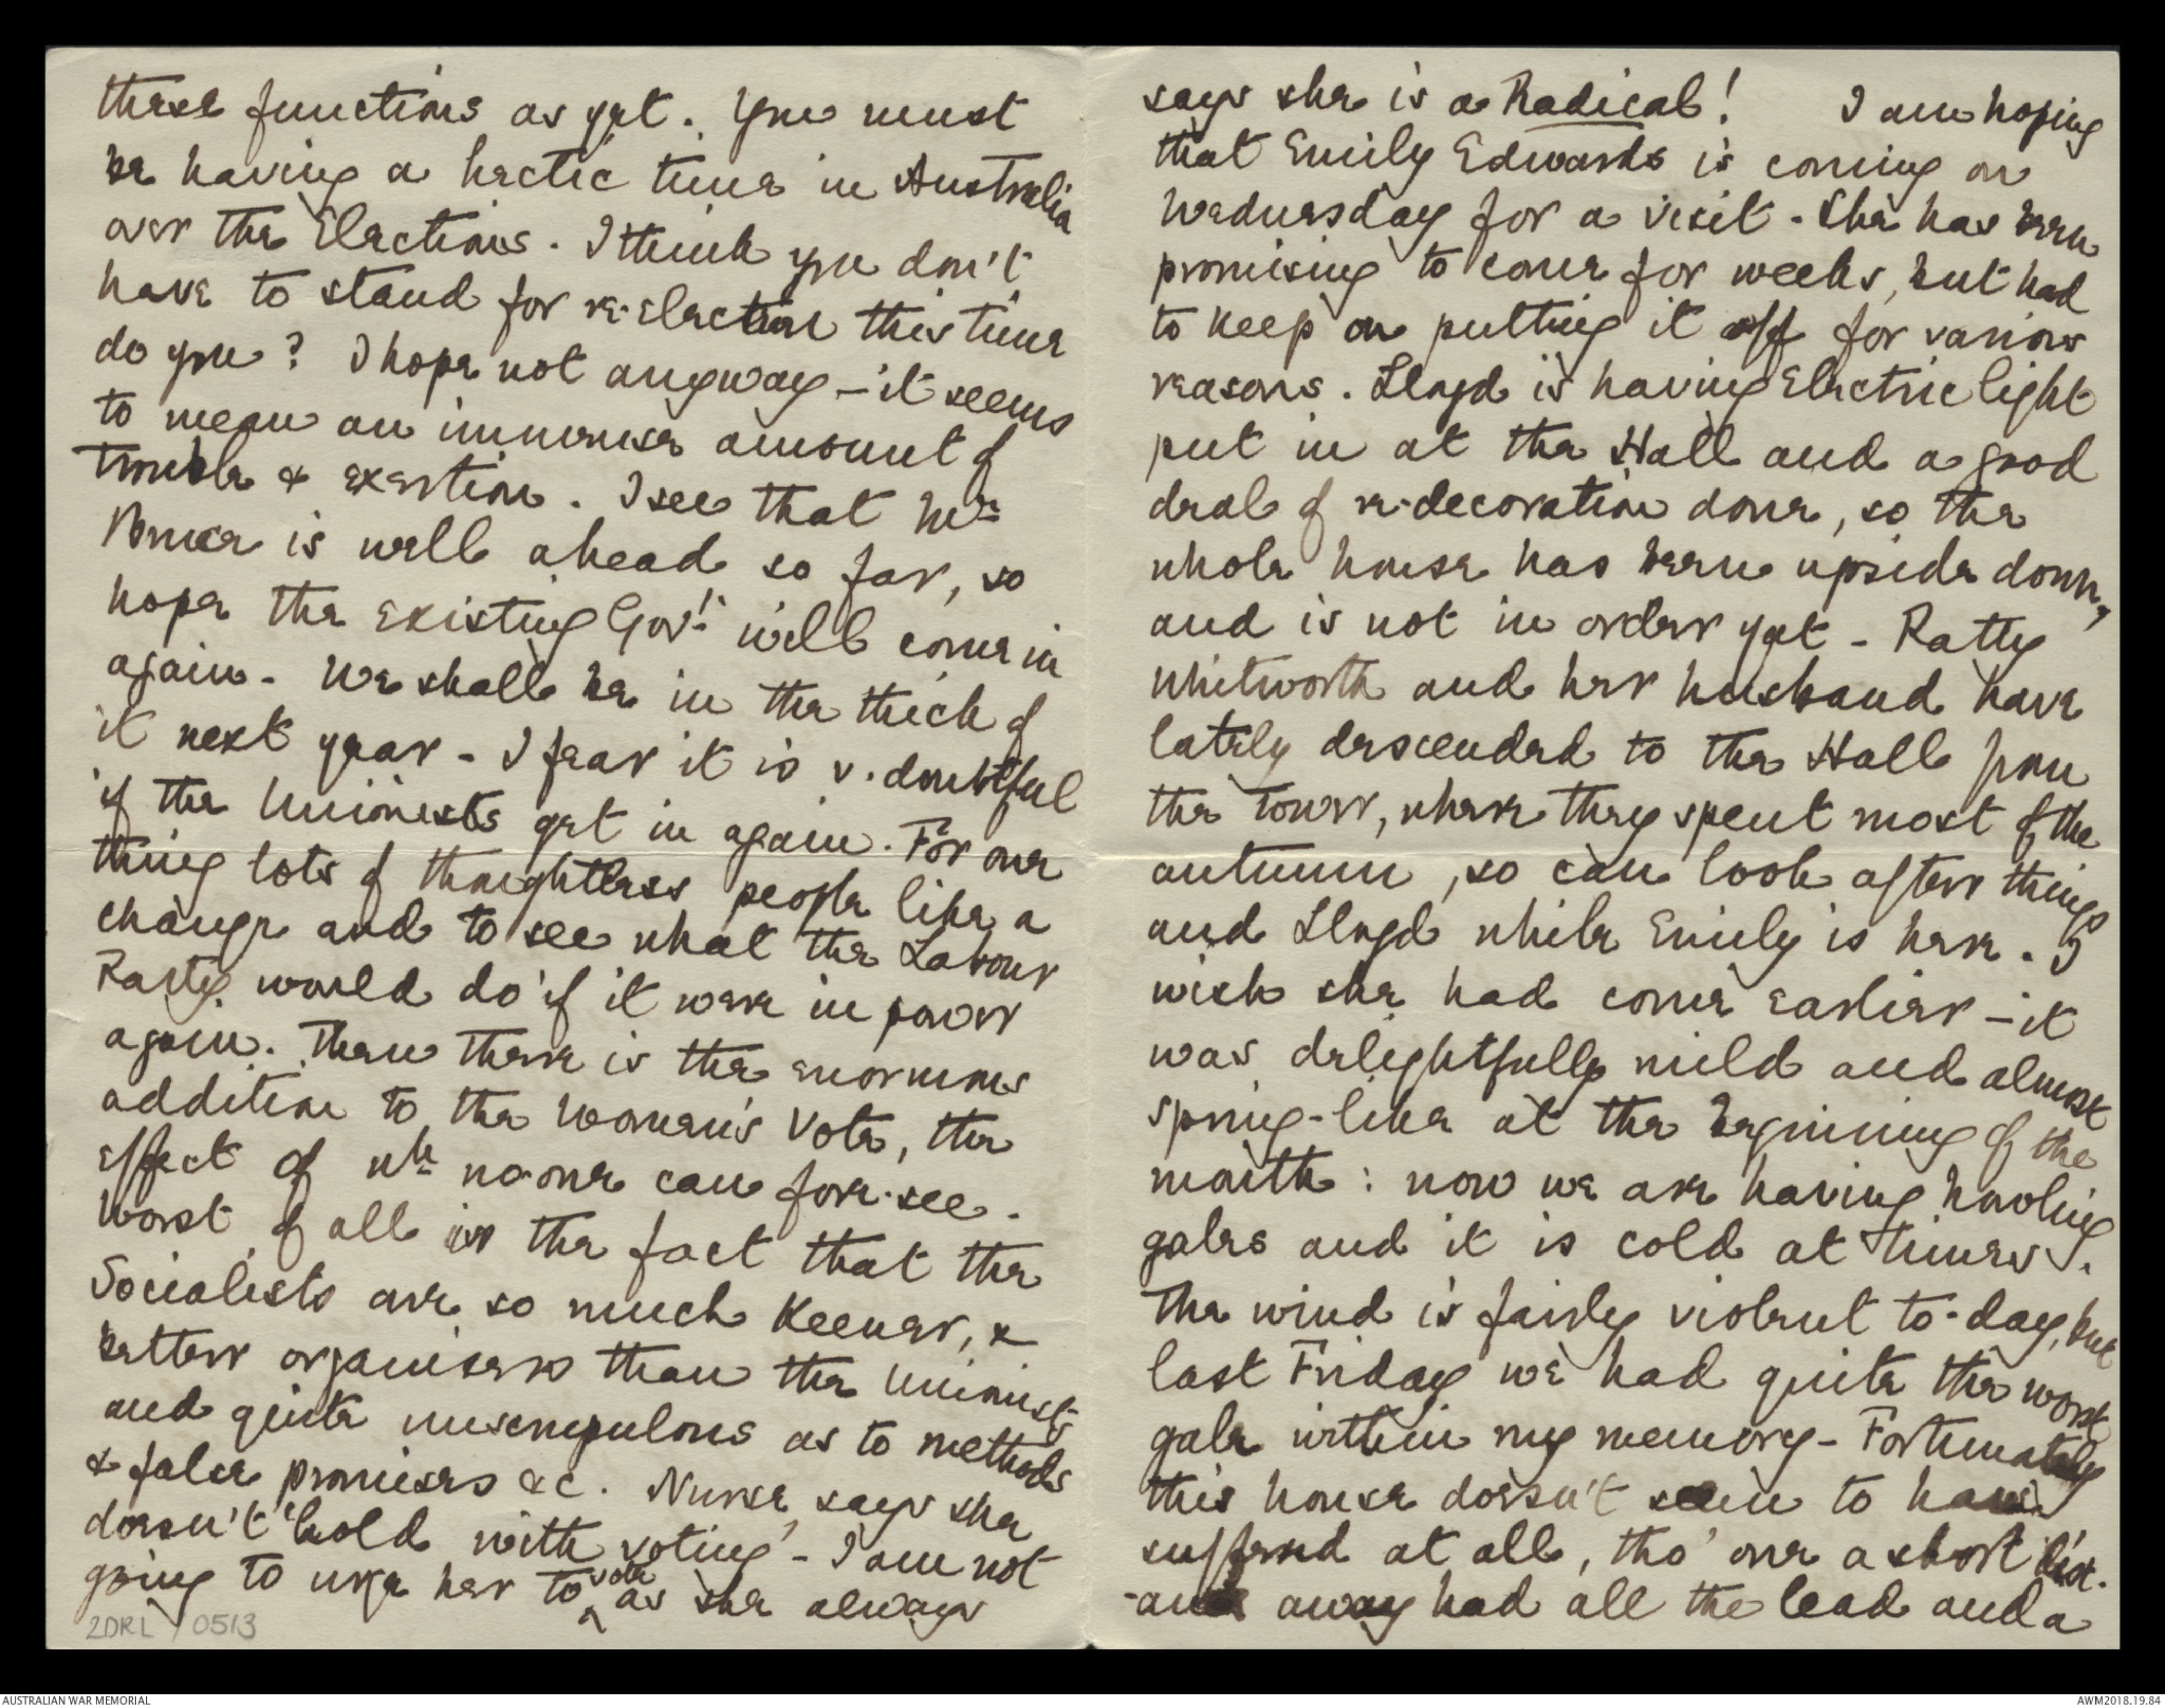 these functions as yet. You must
be having a hectic time in Australia
over the Elections. I think you don't
have to stand for re-election this time
do you? I hope not anyway – it seems
to mean an immense amount of
trouble & exertion. I see that Mr
Bruce is well ahead so far, so
hope the existing Govt. will come in
again – We shall be in the thick of
it next year – I fear it is v. doubtful
if the Unionists get in again. For one
thing lots of thoughtless people like a
change and to see what the Labour
Party would do if it were in power
again. Then there is the enormous
addition to the Women's Vote, the
effect of wh no-one can fore-see.
Worst of all is the fact that the
Socialists are so much Keener, &
better organisers than the Unionists
and quite unscrupulous as to methods
& false promises &c. Nurse says she
doesn't "hold with voting" – I am not
going to urge her to vote as she always
2DRL / 0513
says she is a Radical! I am hoping
that Emily Edwards is coming on
Wednesday for a visit – She has been
promising to come for weeks, but had
to keep on putting it off for various
reasons. Lloyd is having Electric light
put in at the Hall and a good
deal of re-decoration done, so the
whole house has been upside down,
and is not in order yet – Patty
Whitworth and her husband have
lately descended to the Hall from
the Tower, where they spent most of the
autumn, so can look after things
and Lloyd while Emily is here. I
wish she had come earlier – it
was delightfully mild and almost
spring-like at the beginning of the
month: now we are having howling
gales and it is cold at times.
The wind is fairly violent to-day, but
last Friday we had quite the worst
gale within my memory – Fortunately
this house doesn't seem to have
suffered at all, tho' one a short dist-
-ance away had all the lead and a
AUSTRALIAN WAR MEMORIAL
AWM2018.19.84